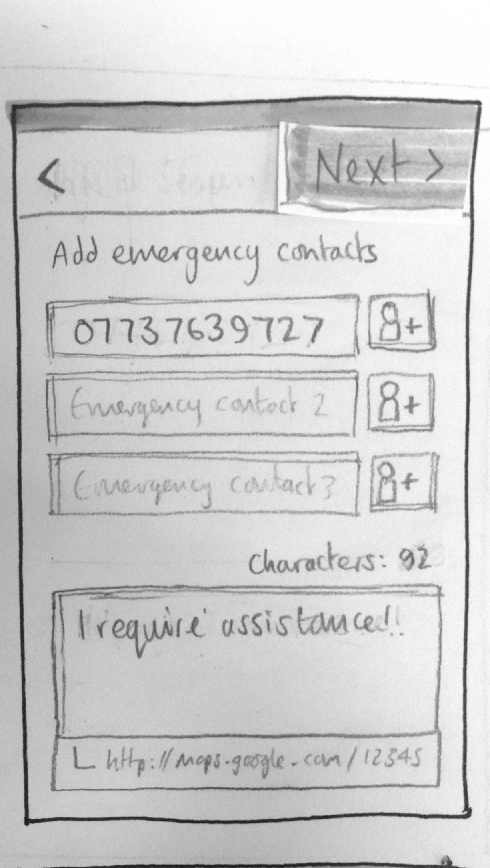 < Next >
Add emergency contacts
07737639727
Emergency contact 2
Emergency contact 3
Characters: 92
I require assistance!!
http://maps.google.com/12345